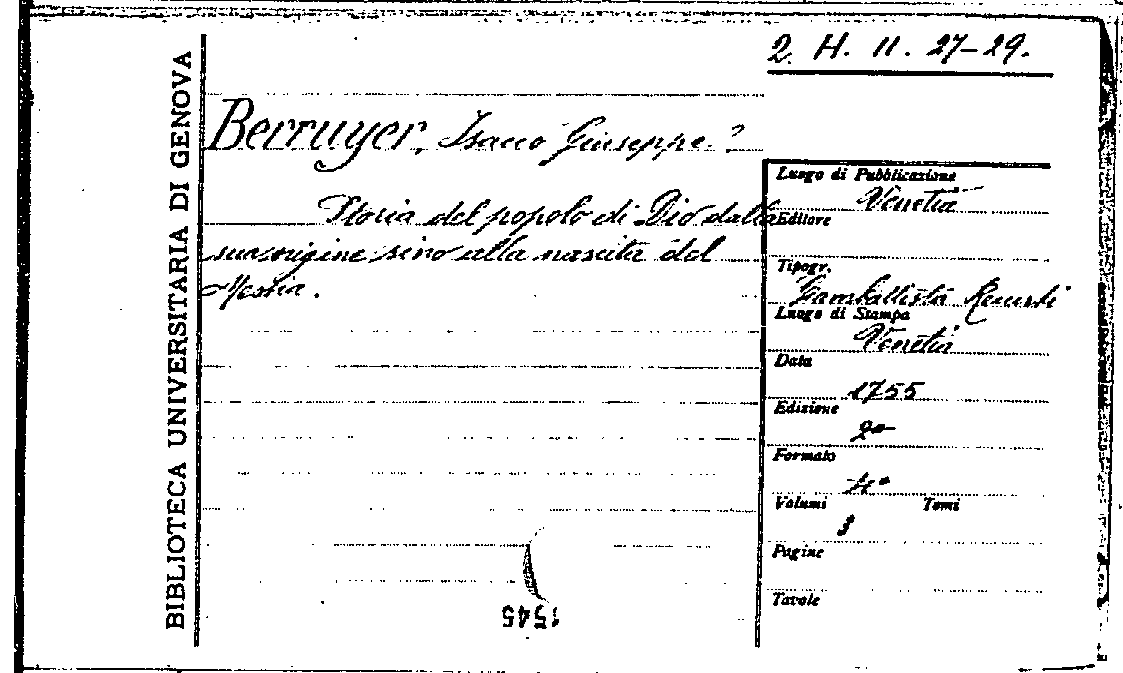 2. H. 11. 27-29.
BIBLIOTECA UNIVERSITARIA DI GENOVA
Berruyer, Isacco Giuseppe
Storia del popolo di Dio dalla
sua origine sino alla nascita del
Messia.
Luogo di Pubblicazione
Venetia
Editore
Tipogr.
Giambattista Recurti
Luogo di Stampa
Venetia
Data
1755
Edizione
2a
Formato
4°
Volumi Tomi
3
Pagine
Tavole
1545